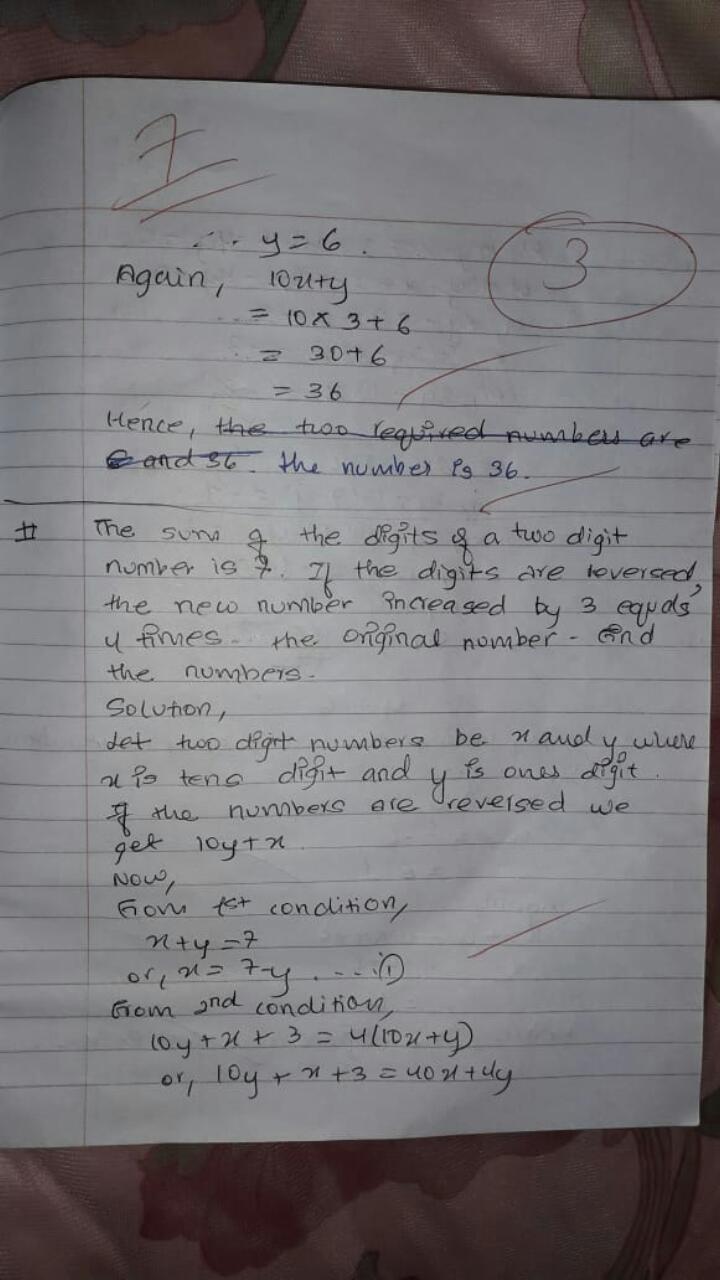 7
3
∴ y = 6.
Again, 10x+y
= 10 × 3 + 6
= 30+6
= 36
Hence, the two required numbers are
6 and 36. the number is 36.
# The sum of the digits of a two digit
number is 7. If the digits are reversed,
the new number increased by 3 equals
4 times. the original number. Find
the numbers.
Solution,
Let two digit numbers be x and y where
x is tens digit and y is ones digit.
If the numbers are reversed we
get 10y+x.
Now,
From 1st condition,
x+y=7
or, x = 7-y ....①
From 2nd condition,
10y + x + 3 = 4(10x+y)
or, 10y + x + 3 = 40x+4y